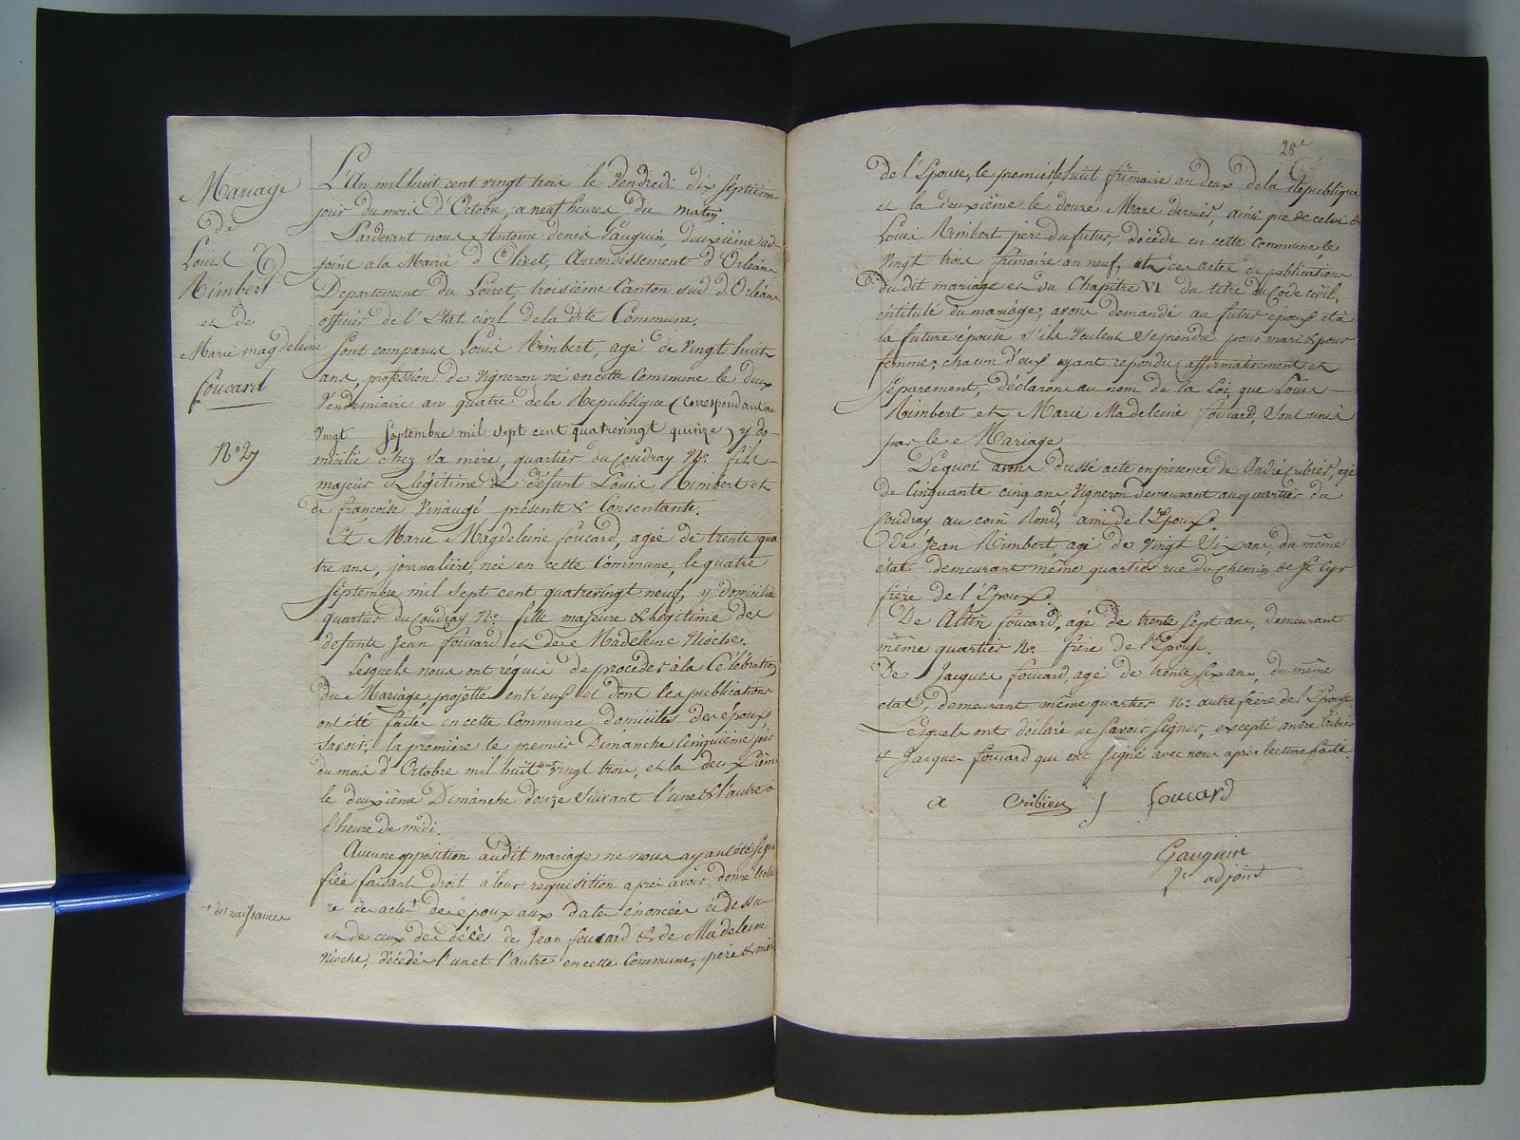 Mariage
de
Louis
Rimbert
et de
Marie magdeleine
foucard
N° 27
des naissances
L'An mil huit cent vingt trois le Vendredi dix septième
jour du mois d'Octobre, a neuf heures du matin.
Pardevant nous Antoine denis Gauguin, deuxième ad-
joint a la Mairie d'Olivet, Arrondissement d'Orléans
Departement du Loiret, troisième Canton sud d'Orléans
officier de l'Etat civil de la dite Commune.
Sont comparus Louis Rimbert, agé de Vingt huit
ans, profession de Vigneron né en cette Commune le deux
Vendemiaire an quatre de la Republique (correspondant au
vingt Septembre mil sept cent quatrevingt quinze) y do-
micilié chez sa mère, quartier du Coudray N°. fils
majeur et légitime de défunt Louis Rimbert et
de francoise Renaugé présente & Consentante.
Et Marie Magdeleine foucard, agée de trente qua
tre ans, journalière, née en cette Commune, le quatre
Septembre mil sept cent quatrevingt neuf, y domiciliée
quartier du Coudray N°. fille majeure & légitime de
defunts Jean foucard et de Madeleine
Lesquels nous ont requis de procéder à la Célébration
du Mariage projetté entr'eux et dont les publications
ont été faites en cette Commune domiciles des époux,
Savoir: la première le premier Dimanche Cinquième jour
du mois d'Octobre mil huit cent vingt trois, et la deuxième
le deuxième Dimanche douze suivant l'une & l'autre à
l'heure de midi.
Aucune opposition audit mariage ne nous ayant été signi
fiée faisant droit à leur requisition après avoir donné lectu
re des actes des époux aux dates énoncées ci dessus
et de ceux des décès de Jean foucard & de Madeleine
décédés l'un et l'autre en cette Commune, père & mère
28
de l'Epouse, le premier le huit frimaire an deux de la République
et la deuxième le douze Mars dernier, ainsi que de celui de
Louis Rimbert père du futur, décédé en cette commune le
vingt trois frimaire an neuf, des actes de publications
dudit mariage et du Chapitre VI du titre du Code civil,
intitulé du mariage, avons demandé au futur epoux et à
la future épouse s'ils veulent se prendre pour mari & pour
femme; chacun d'eux ayant répondu affirmativement et
séparement, déclarons au nom de la Loi, que Louis
Rimbert et Marie Madeleine foucard, sont unis
par le Mariage
De quoi avons dressé acte en présence de André Cribier, agé
de Cinquante cinq ans, Vigneron demeurant au quartier du
Coudray au coin Rond, ami de l'Epoux.
De Jean Rimbert, agé de Vingt Six ans, du même
état demeurant même quartier rue du Chemin de St Cyr
frère de l'Epoux
De foucard, agé de trente sept ans, demeurant
même quartier N°. frère de l'Epouse.
De Jacques foucard, agé de trente six ans, du même
état, demeurant même quartier N°. autre frère de l'Epouse
Lesquels ont déclaré ne savoir signer, excepté andré Cribier
et Jacques foucard qui ont signé avec nous après lecture faite.
a Cribier J foucard
Gauguin
2e adjoint